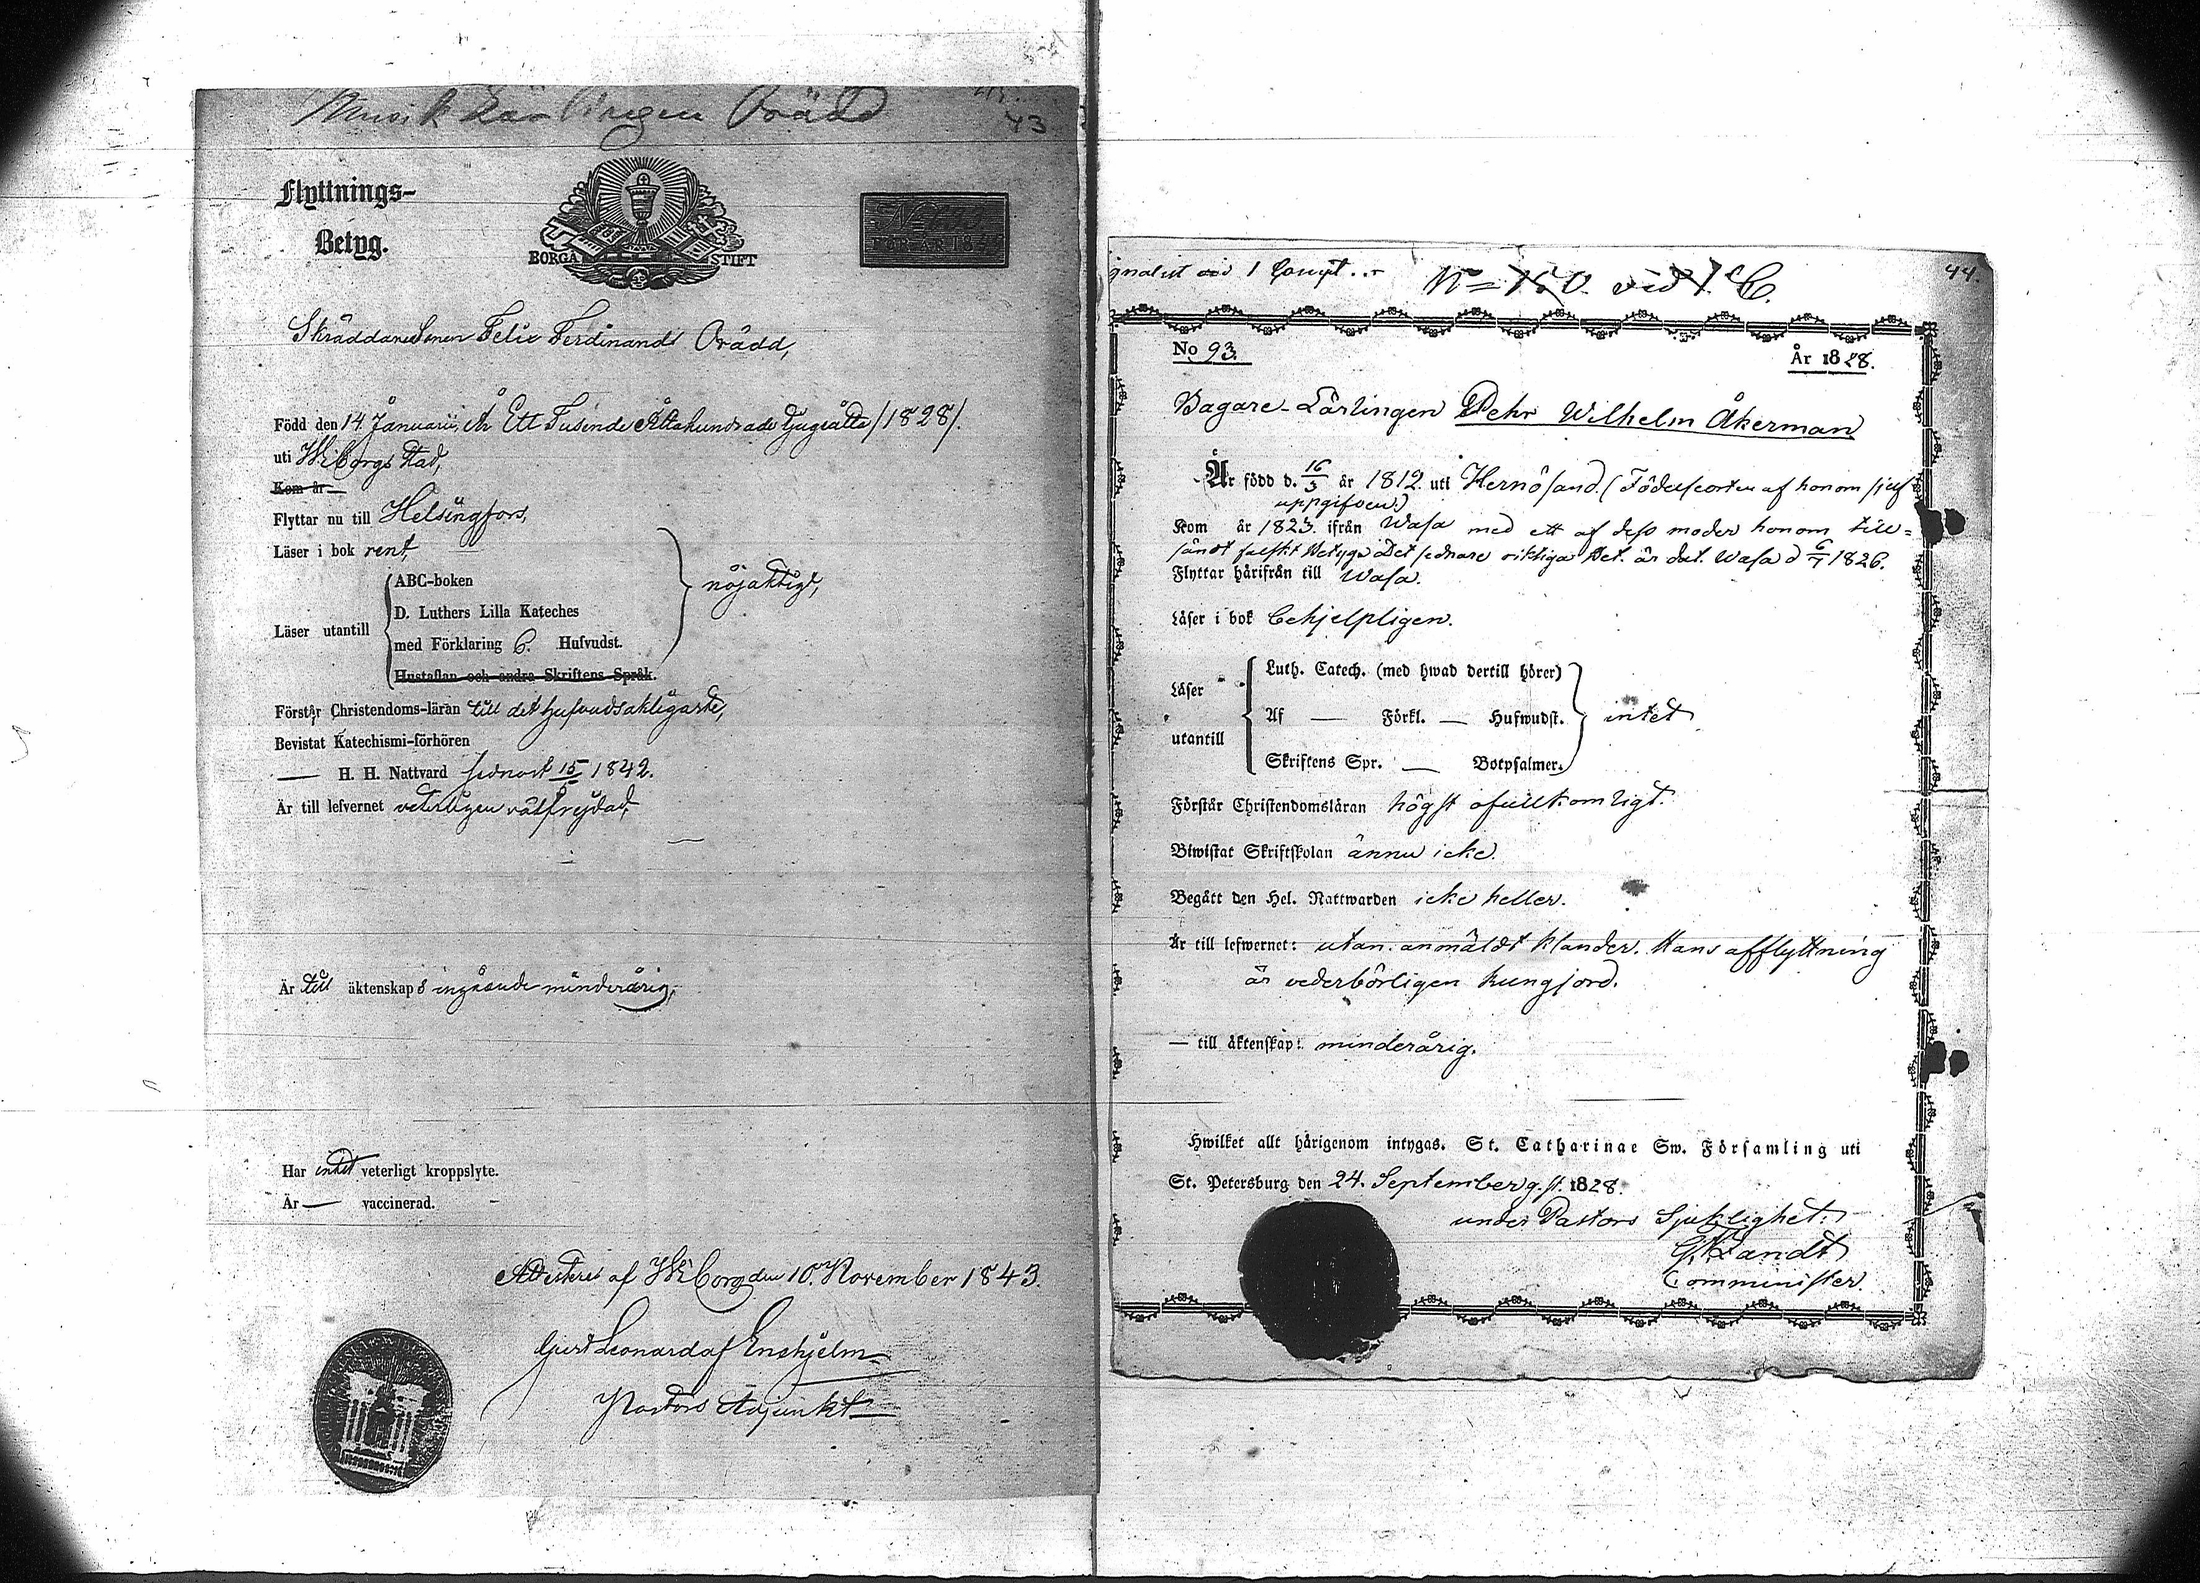 Musik Lärlingen Orädd
43
Flyttnings-
Betyg.
BORGÅ STIFT
FÖR ÅR 18
Skräddaresonen Felix Ferdinand Orädd,
Född den 14 Januarii, år Ett Tusende Åttahundrade tjuguåtta /1828/.
uti Wiborgs stad,
Kom år
Flyttar nu till Helsingfors,
Läser i bok rent
Läser utantill
ABC-boken
D. Luthers Lilla Kateches
med Förklaring 6. Hufvudst.
Hustaflan och andra Skriftens Språk.
nöjaktigt,
Förstår Christendoms-läran till det hufvudsakligaste,
Bevistat Katechismi-förhören
— H. H. Nattvard sednast 15/ 1842.
Är till lefvernet veterligen välfrejdad,
Är till äktenskaps ingående minderårig,
Har intet veterligt kroppslyte.
Är — vaccinerad.
Attesteras af Wiborg den 10 November 1843.
Leonard af Enehjelm
Pastors Adjunkt
gnalist vid 1 Compt
No 150. vid 1 C.
44.
No 93.
År 1828.
Bagare-Lärlingen Pehr Wilhelm Åkerman
Är född d. 16/3 år 1812 uti Hernösand. (Födelseorten af honom sjelf
uppgifven.)
Kom år 1823. ifrån Wasa med ett af dess moder honom till-
sändt falskt Betyg. Det sednare riktiga Bet. är dat. Wasa d 6/7 1826.
Flyttar härifrån till Wasa.
Läser i bok behjelpligen.
Läser
utantill
Luth. Catech. (med hwad dertill hörer)
Af — Förkl. — Hufwudst.
Skriftens Spr. — Botpsalmer.
intet
Förstår Christendomsläran högst ofullkomligt.
Biwistat Skriftskolan ännu icke.
Begått den Hel. Nattwarden icke heller.
Är till lefwernet: utan anmäldt klander. Hans afflyttning
är vederbörligen kungjord.
— till äktenskap: minderårig.
Hwilket allt härigenom intygas. St. Catharinae Sw. Församling uti
St. Petersburg den 24. September g. st. 1828.
under Pastors Sjuklighet:
Comminister.